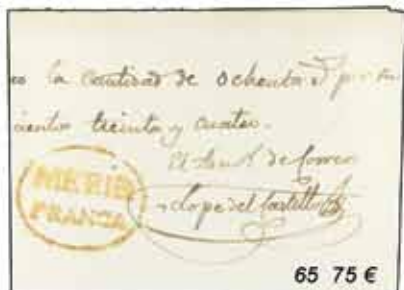 la cantidad de ochenta
cientos treinta y cuatro.
de Correos
Lope del Castillo
MERID
FRANCA
65 75 €